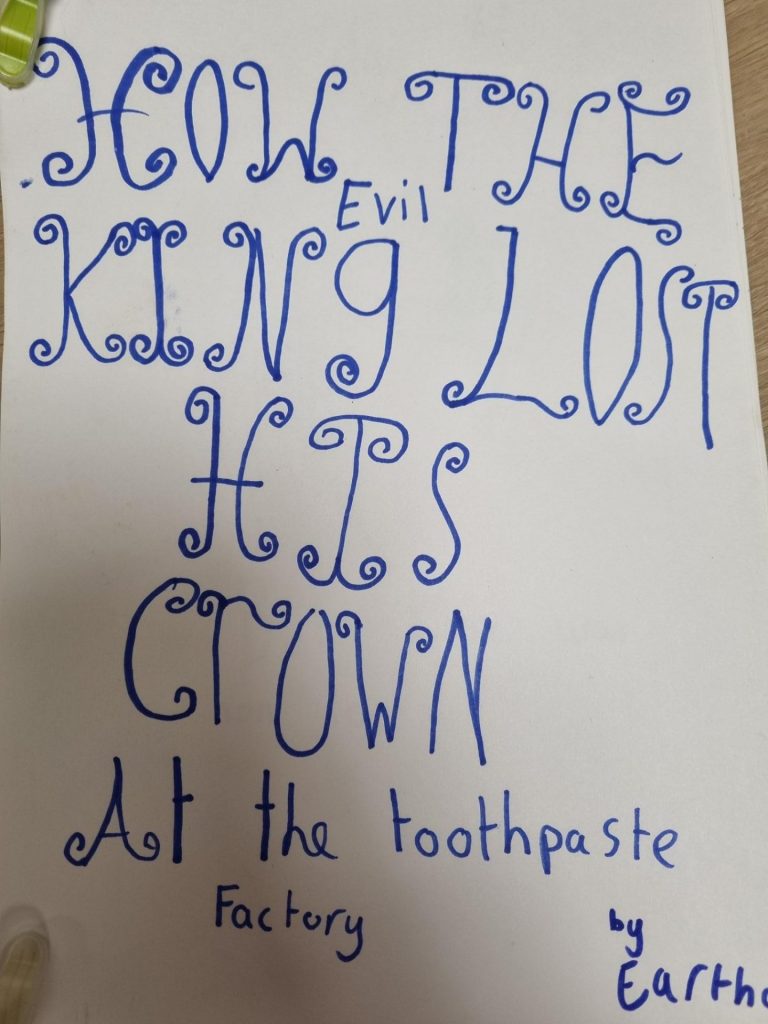 HOW THE
Evil
KING LOST
HIS
CrOWN
At the toothpaste
Factory
by